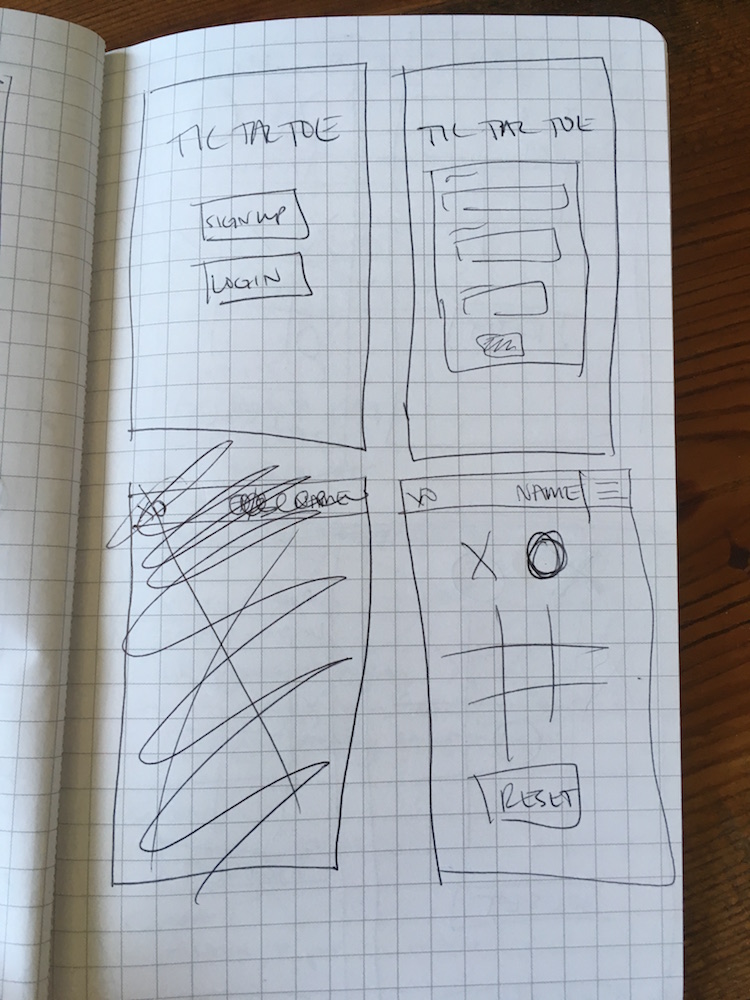 TIC TAC TOE
SIGN UP
LOGIN
TIC TAC TOE
XO
NAME
X O
RESET